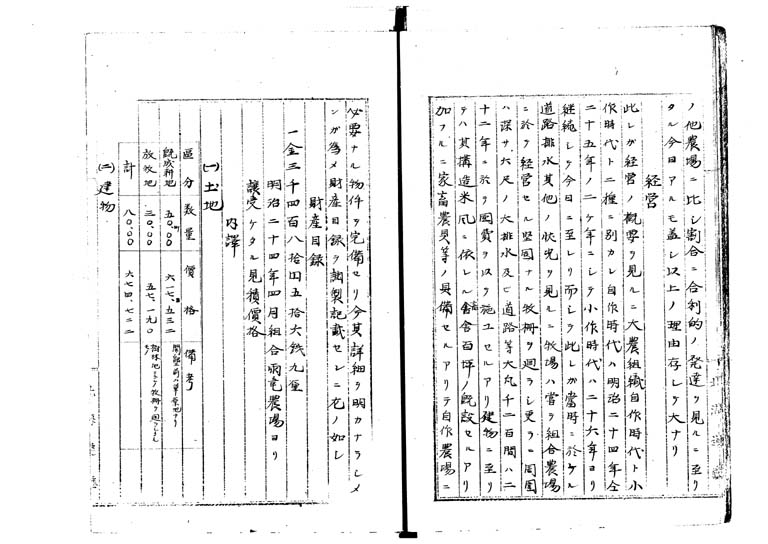 ノ他農場ニ比シ割合ニ合利的ノ発達ヲ見ルニ至リ
タル今日アルモ蓋シ以上ノ理由存シテ大ナリ
経営
此レガ経営ノ概要ヲ見ルニ大農組織自作時代ト小
作時代ト二種ニ別カレ自作時代ハ明治二十四年仝
二十五年ノ二ケ年ニシテ小作時代ハ二十六年ヨリ
継続シテ今日ニ至レリ而シテ此レガ当時ニ於ケル
道路排水其他ノ状況ヲ見ルニ牧場ハ当ヲ組合農場
ニ於テ経営セル堅固ナル牧柵ヲ廻ラシ更ラニ周囲
ハ深サ六尺ノ大排水及ビ道路等大凡千二百間ハ二
十二年ニ於テ国費ヲ以テ施工セルアリ建物ニ至リ
テハ其構造米風ニ依レル畜舎百坪ノ既設セルアリ
加フルニ家畜農具等ノ具備セルアリテ自作農場ニ
必要ナル物件ヲ完備セリ今其詳細ヲ明カナラシメ
ンガ為メ財産目録ヲ調製記載セシニ左ノ如シ
財産目録
一金三千四百八拾四五拾六銭九厘
明治二十四年四月組合雨竜農場ヨリ
譲受ケタル見積価格
内譯
(一)土地
区分 数量 価格 備考
既成耕地 五〇.〇〇 六一七.五三二
放牧地 三〇.〇〇 五七.一九〇
計 八〇.〇〇 六七四.七二二
(二)建物